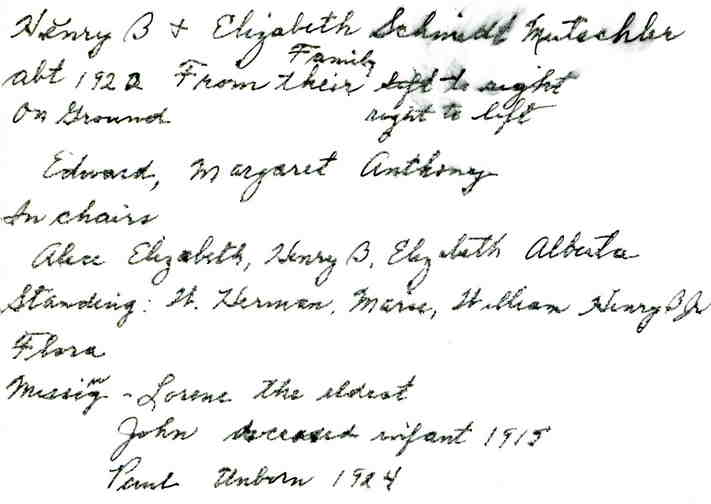 Henry B + Elizabeth Schmidt Mutschler
Family
abt 1922 From their left to right
On Ground right to left
Edward, Margaret Anthony
In chairs
Alice Elizabeth, Henry B, Elizabeth Alberta
Standing: H. Herman, Marie, William Henry B Jr
Flora
Missing - Lorene the eldest
John deceased infant 1915
Paul Unborn 1924